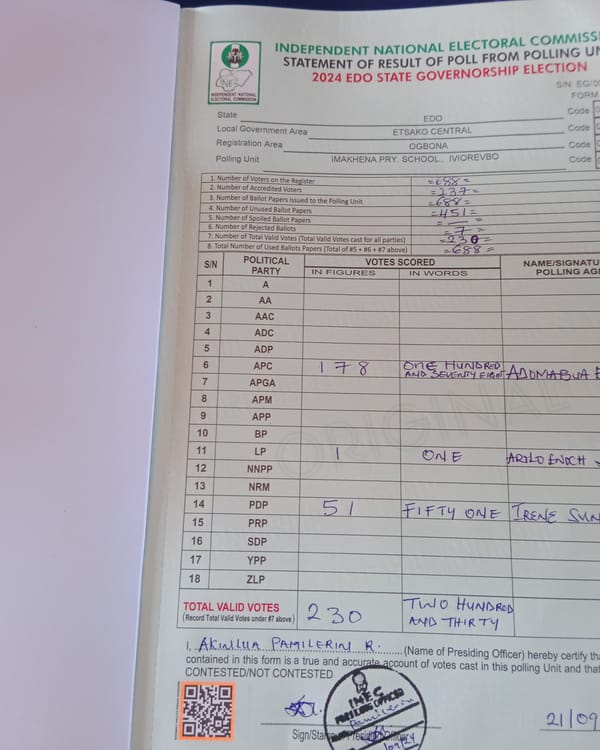 INDEPENDENT NATIONAL ELECTORAL COMMISS
STATEMENT OF RESULT OF POLL FROM POLLING UN
2024 EDO STATE GOVERNORSHIP ELECTION
INEC
INDEPENDENT NATIONAL
ELECTORAL COMMISSION
S/N EG/0
FORM
State EDO Code
Local Government Area ETSAKO CENTRAL Code
Registration Area OGBONA Code
Polling Unit IMAKHENA PRY. SCHOOL., IVIOREVBO Code
1. Number of Voters on the Register =688=
2. Number of Accredited Voters =237=
3. Number of Ballot Papers Issued to the Polling Unit =688=
4. Number of Unused Ballot Papers =451=
5. Number of Spoiled Ballot Papers = — =
6. Number of Rejected Ballots =7=
7. Number of Total Valid Votes (Total Valid Votes cast for all parties) =230=
8. Total Number of Used Ballots Papers (Total of #5 + #6 + #7 above) =688=
S/N POLITICAL PARTY VOTES SCORED NAME/SIGNATU
IN FIGURES IN WORDS POLLING AG
1 A
2 AA
3 AAC
4 ADC
5 ADP
6 APC 178 ONE HUNDRED AND SEVENTY EIGHT ADOMABUA
7 APGA
8 APM
9 APP
10 BP
11 LP 1 ONE ENOCH
12 NNPP
13 NRM
14 PDP 51 FIFTY ONE IRENE SUN
15 PRP
16 SDP
17 YPP
18 ZLP
ORIGINAL
TOTAL VALID VOTES 230 TWO HUNDRED
(Record Total Valid Votes under #7 above) AND THIRTY
I, PAMILERIN R. (Name of Presiding Officer) hereby certify tha
contained in this form is a true and accurate account of votes cast in this polling Unit and that
CONTESTED/NOT CONTESTED
INEC
PRESIDING OFFICER
Pamilerin
/09/24
Sign/Stamp
21/09